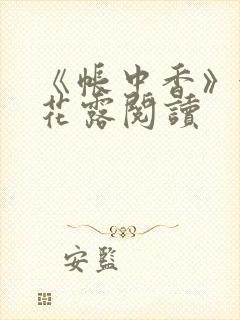 《帳中香》
花露閱讀
安監